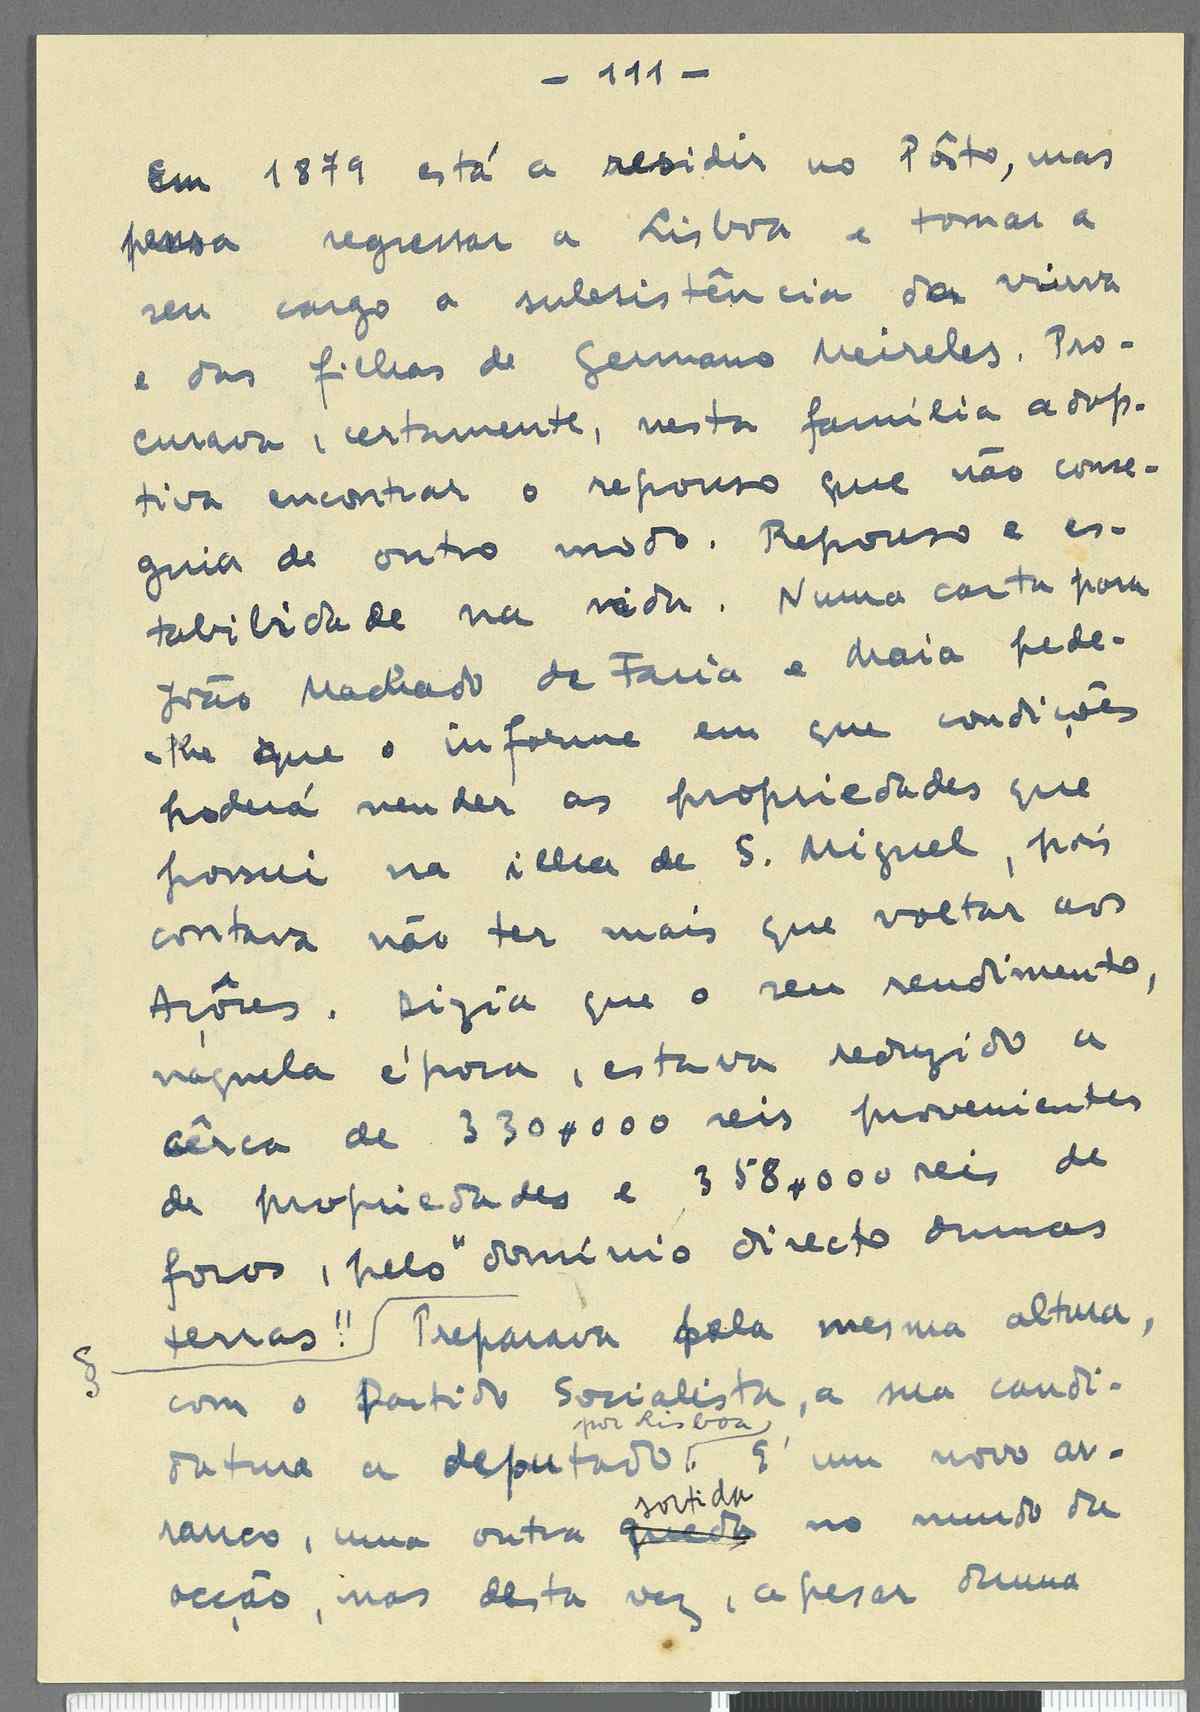 - 111 -
Em 1879 está a residir no Pôrto, mas
pensa regressar a Lisboa e tomar a
seu cargo a subsistência da viuva
e das filhas de Germano Meireles. Pro-
curava, certamente, nesta família adop-
tiva encontrar o repouso que não conse-
guia de outro modo. Repouso e es-
tabilidade na vida. Numa carta para
João Machado de Faria e Maia pede-
-lhe que o informe em que condições
poderá vender as propriedades que
possui na ilha de S. Miguel, pois
contava não ter mais que voltar aos
Açôres. Dizia que o seu rendimento,
náquela época, estava reduzido a
cêrca de 330$000 reis provenientes
de propriedades e 358$000 reis de
foros, pelo "domínio directo dumas
terras" Preparava pela mesma altura,
§
com o Partido Socialista, a sua candi-
por Lisboa
datura a deputado. É um novo ar-
sortida
ranco, uma outra queda no mundo da
acção, mas desta vez, apesar duma